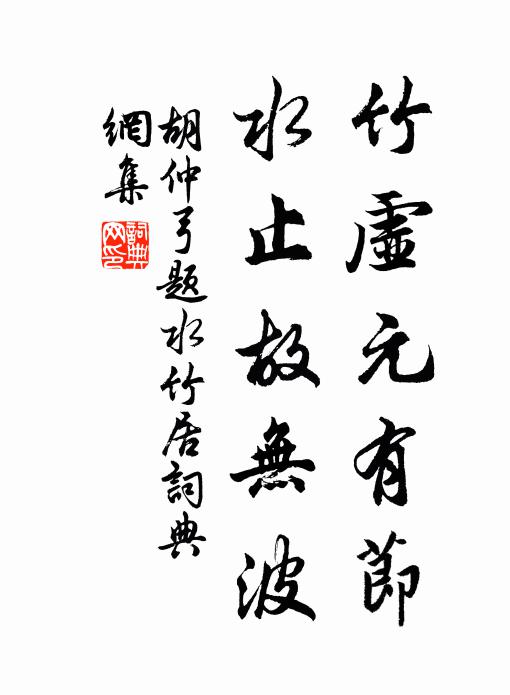 竹虛元有節
水止故無波
胡仲弓題水竹居詞典
網集
詞典网印